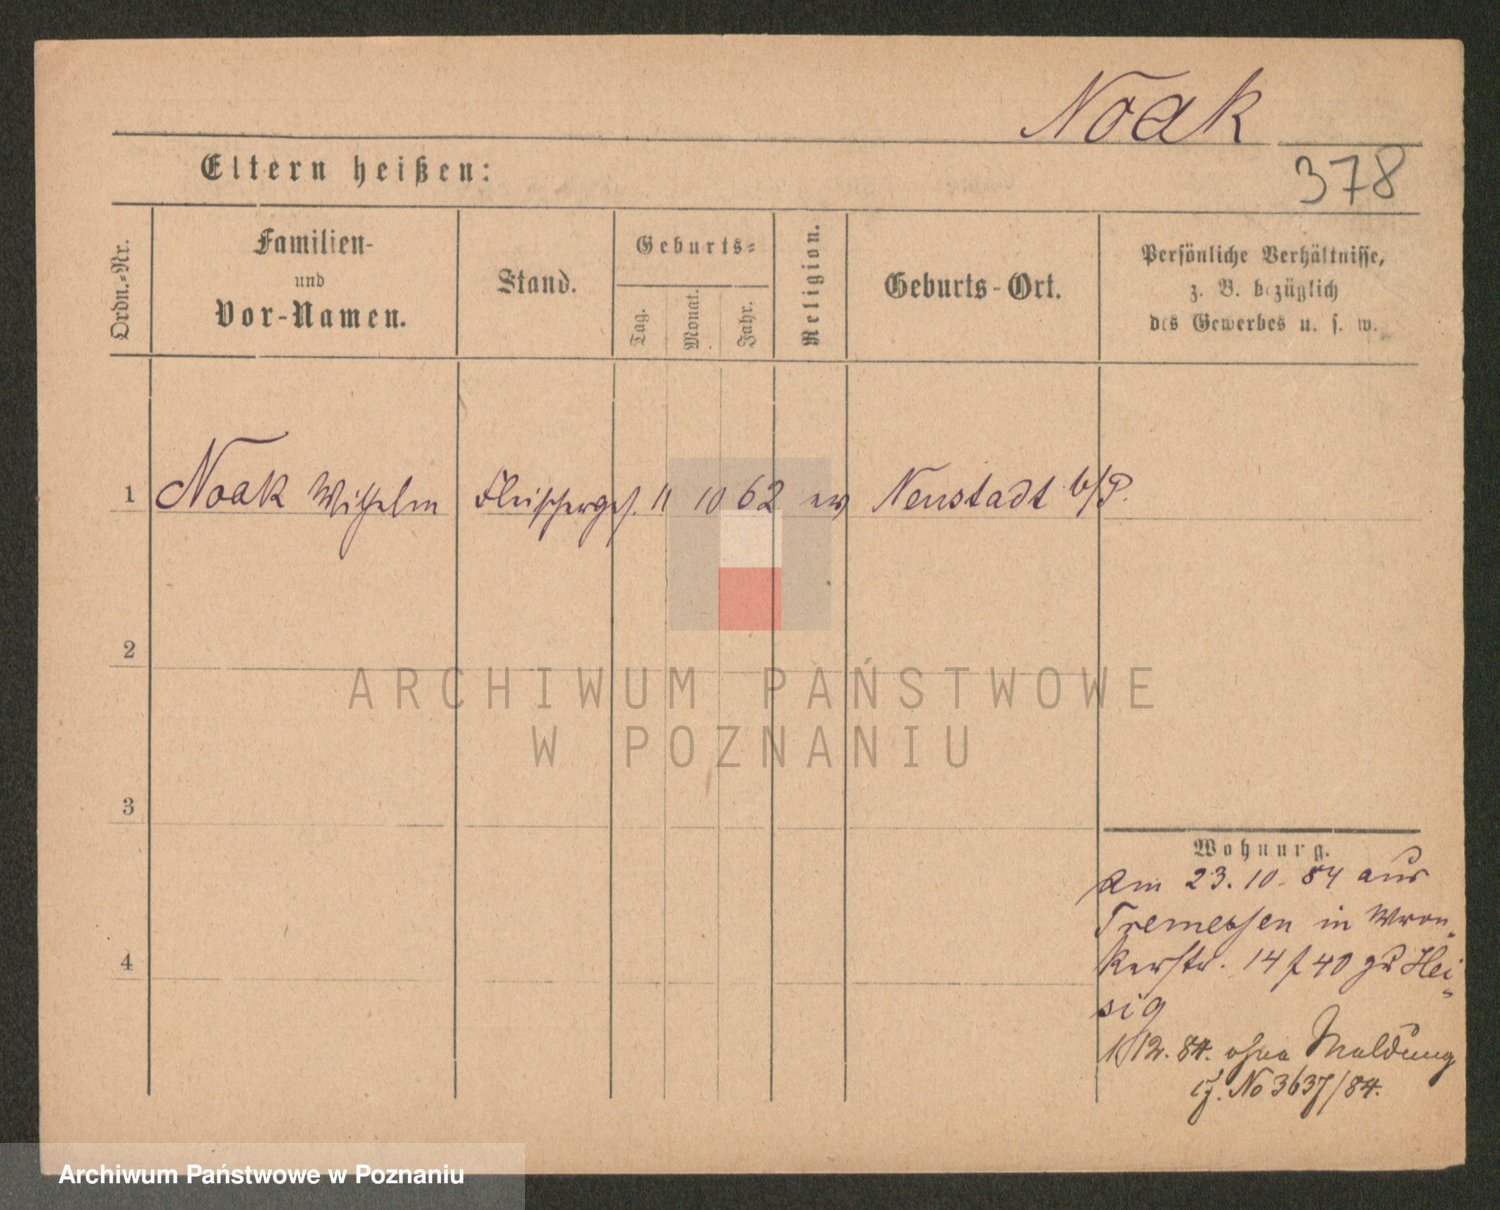 Noak
378
Eltern heißen:
Ordn.-Nr.
Familien-
und
Vor-Namen.
Stand.
Geburts-
Tag.
Monat.
Jahr.
Religion.
Geburts-Ort.
Persönliche Verhältnisse,
z. B. bezüglich
des Gewerbes u. s. w.
1 Noak Wilhelm Fleischerges. 11 10 62 ev Neustadt b/P.
2
ARCHIWUM PAŃSTWOWE
W POZNANIU
3
Wohnung.
Am 23.10.84 aus
Tremessen in Wron-
4
kerstr. 14 f 40 zu Hei-
sig
1/12.84. ohne Meldung
No 3637/84.
Archiwum Państwowe w Poznaniu